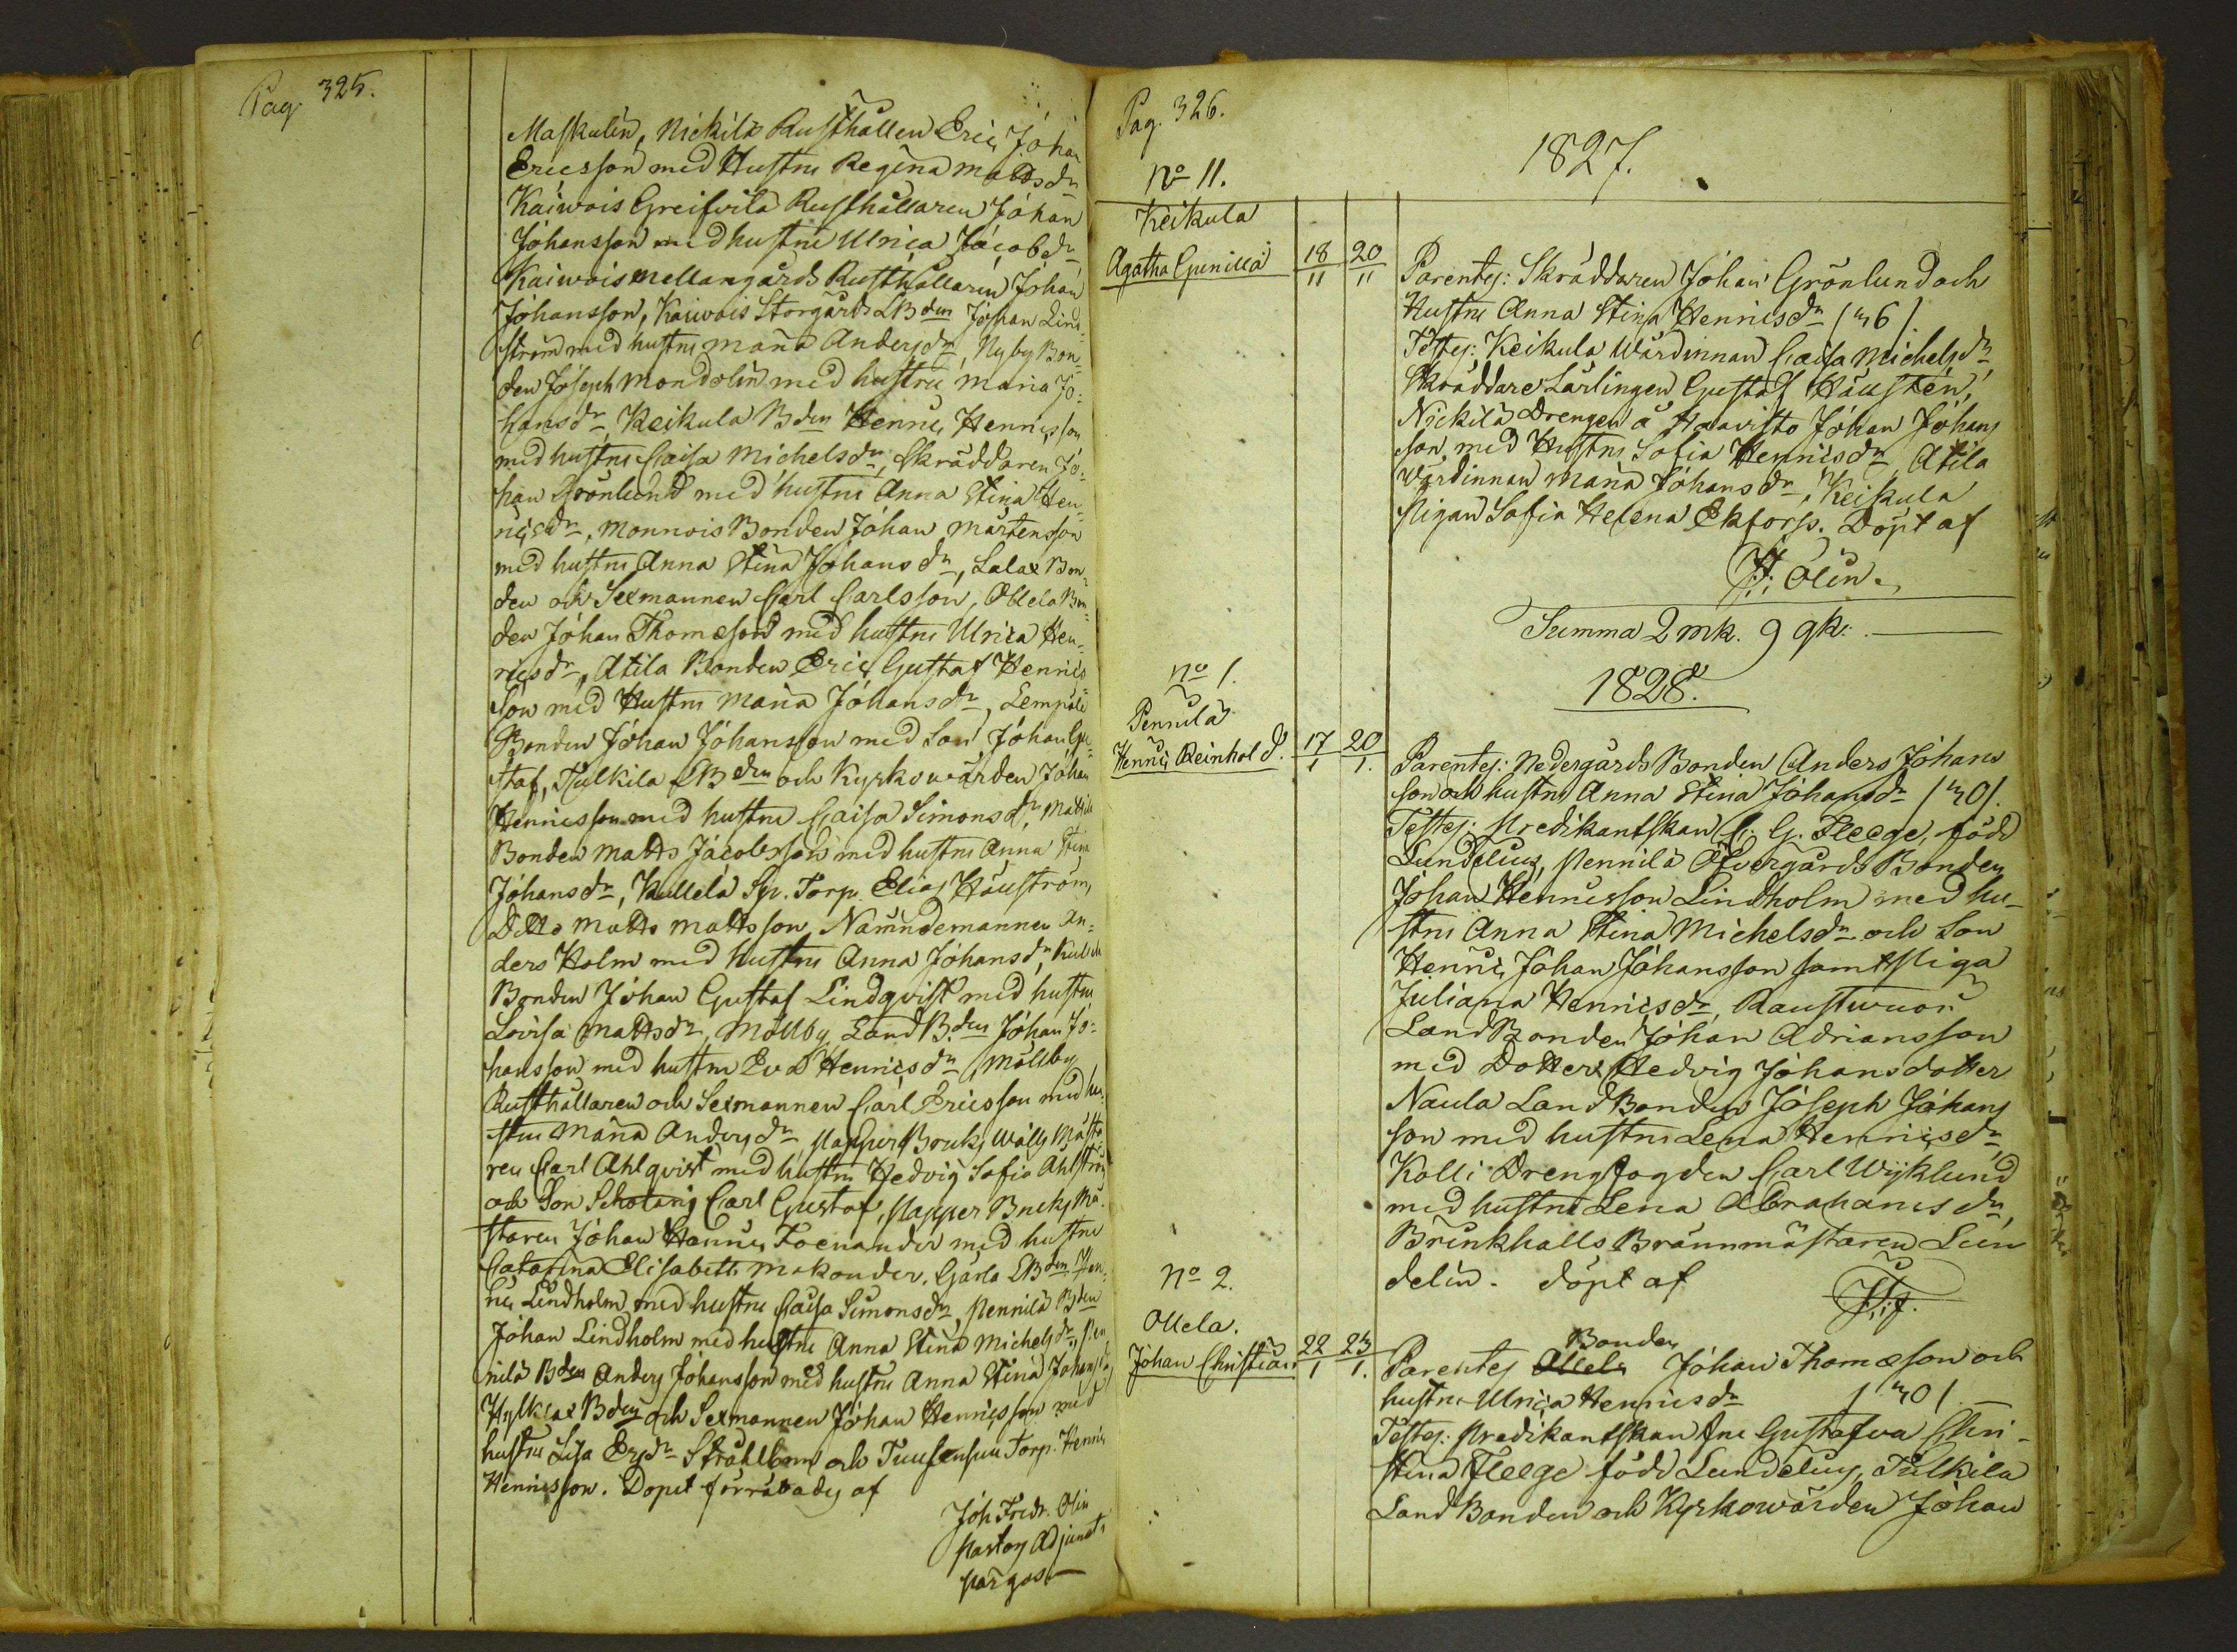 Pag. 325.
Maskulin, Nickilä Rusthållen Eric Johan
Ericsson med Hustru Regina Mattsdr
Kaiwois Greifvilä Rusthållaren Johan
Johansson med hustru Ulrica Jacobsdr
Kaiwois Mellangårds Rusthållaren Johan
Johansson, Kaiwois Storgårds LBden Johan Lind-
ström med hustru Maria Andersdr, Nyby Bon-
den Joseph Mondolin med hustru Maria Jo-
hansdr, Keikula Bden Henric Henricsson
med hustru Caisa Michelsdr, Skräddaren Jo-
han Grönlund med hustru Anna Stina Hen-
ricsdr, Monnois Bonden Johan Mårtensson
med hustru Anna Stina Johansdr, Lalax Bon-
den och Sexmannen Carl Carlsson, Ollela Bon-
den Johan Thomæson med hustru Ulrica Hen-
ricsdr, Atila Bonden Eric Gustaf Henrics
Son med Hustru Maria Johansdr,
Bonden Johan Johansson med Son Johan Gu-
staf, Tulkila LBden och Kyrkowärden Johan
Henricsson med hustru Caisa Simonsdr,
Bonden Matts Jacobsson med hustru Anna Stina
Johansdr, Kullela Sp. Torp. Elias
Ditto Matts Mattsson, Nämndemannen An-
ders Holm med hustru Anna Johansdr,
Bonden Johan Gustaf Lindqvist med hustru
Lovisa Mattsdr, Mållby Land B.den Johan Jo-
hansson med hustru Eva Henricsdr Mållby
Rusthållaren och Sexmannen Carl Ericsson med hu-
stru Maria Andersdr Papper Bruks Mästa
ren Carl Ahlqvist med hustru Hedvig Sofia
och Son Carl Gustaf, Papper Bruks Mä-
staren Johan Henric Foenander med hustru
Catarina Elisabeth Gårla LBden Hen-
ric Lindholm med hustru Caisa Simonsdr, Pennilä Bden
Johan Lindholm med hustru Anna Stina Michelsdr, Pen
nilä Bden Anders Johansson med hustru Anna Stina Johansdr
Bden och Sexmannen Johan Henricsson med
hustru Lisa Ersdr och Torp. Henric
Henricsson. Döpt förrättades af
Joh Fredr. Olin
Pastors Adjunct i
Pargas
Pag. 326.
1827.
No 11.
Keikula
Agatha Gunilla 18/11 20/11
Parentes: Skräddaren Johan Grönlund och
Hustru Anna Stina Henricsdr
Testes: Keikula Wärdinnan Caisa Michelsdr,
Skräddare Lärlingen Gustaf
Nickilä Drengen å Haavisto Johan Johans
son, med Hustru Sofia Henricsdr, Atila
Värdinnan Maria Johansdr, Keikula
Pigan Sofia Helena Ekfors. Döpt af
J. F. Olin.
Summa 2 mk. 9 qk.
1828.
No 1.
Pennilä
Henric Reinhold. 17/1 20/1.
Parentes: Nedergårds Bonden Anders Johans
son och hustru Anna Stina Johansdr
Testes: Predikantskan C. G. Fleege, född
Lundelius, Pennilä Öfvergårds Bonden
Johan Henricsson Lindholm med hu-
stru Anna Stina Michelsdr och Son
Henric Johan Johansson samt Piga
Juliana Henricsdr,
Land Bonden Johan Adriansson
med Dotter Hedvig Johansdotter
Naula Land Bonden Joseph Johans
son med hustru Lena Henricsdr,
Kolli Drengfogden Carl Wijklund
med hustru Lena Abrahamsdr,
Brinkhalls Brännmästaren Lun
delin. döpt af
No 2.
Ollela.
Johan Christian 22/1 23/1.
Parentes Ollela Bonden Johan Thomæson och
hustru Ulrica Henricsdr
Testes: Predikantskan Fru Gustafva Chri-
stina Fleege född Lundelius, Tulkila
Land Bonden och Kyrkowärden Johan